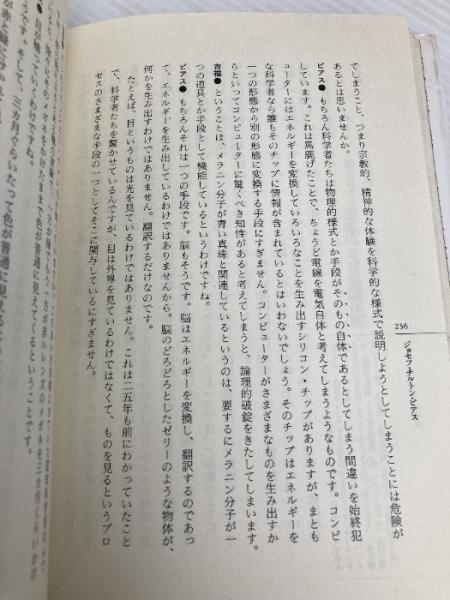 236
ジョセフ チルトン・ピアス
てしまうこと、つまり宗教的、精神的な体験を科学的な様式で説明しようとしてしまうことには危険が
あるとは思いませんか。
ピアス● もちろん科学者たちは物理的様式とか手段がそのもの自体であるとしてしまう間違いを始終犯
しています。これは馬鹿げたことで、ちょうど電線を電気自体と考えてしまうようなものです。コンピ
ューターにはエネルギーを変換していろいろなことを生み出すシリコン・チップがありますが、まとも
な科学者なら誰もそのチップに情報が含まれているとはいわないでしょう。そのチップはエネルギーを
一つの形態から別の形態に変換する手段にすぎません。コンピューターがさまざまなものを生み出すか
らといってコンピューターに驚くべき知性があると考えてしまうと、論理的破綻をきたしてしまいます。
吉福● ということは、メラニン分子が青い真珠と関連しているというのは、要するにメラニン分子が一
つの道具とか手段として機能しているというわけですね。
ピアス● もちろんそれは一つの手段です。脳もそうです。脳はエネルギーを変換し、翻訳するのであっ
て、エネルギーを生み出しているわけではありませんから。脳のどろどろとしたゼリーのような物体が、
何かを生み出すわけではありません。翻訳するだけなのです。
たとえば、目というものは光を見ているわけではありません。これは二五年も前にわかっていたこと
で、科学者たちを驚かせているんですが、目は外界を見ているわけではなくて、ものを見るというプロ
セスのさまざまな手段の一つとしてそこに関与しているにすぎません。
です。そして、三カ月ぐらいたって色が普通に見え